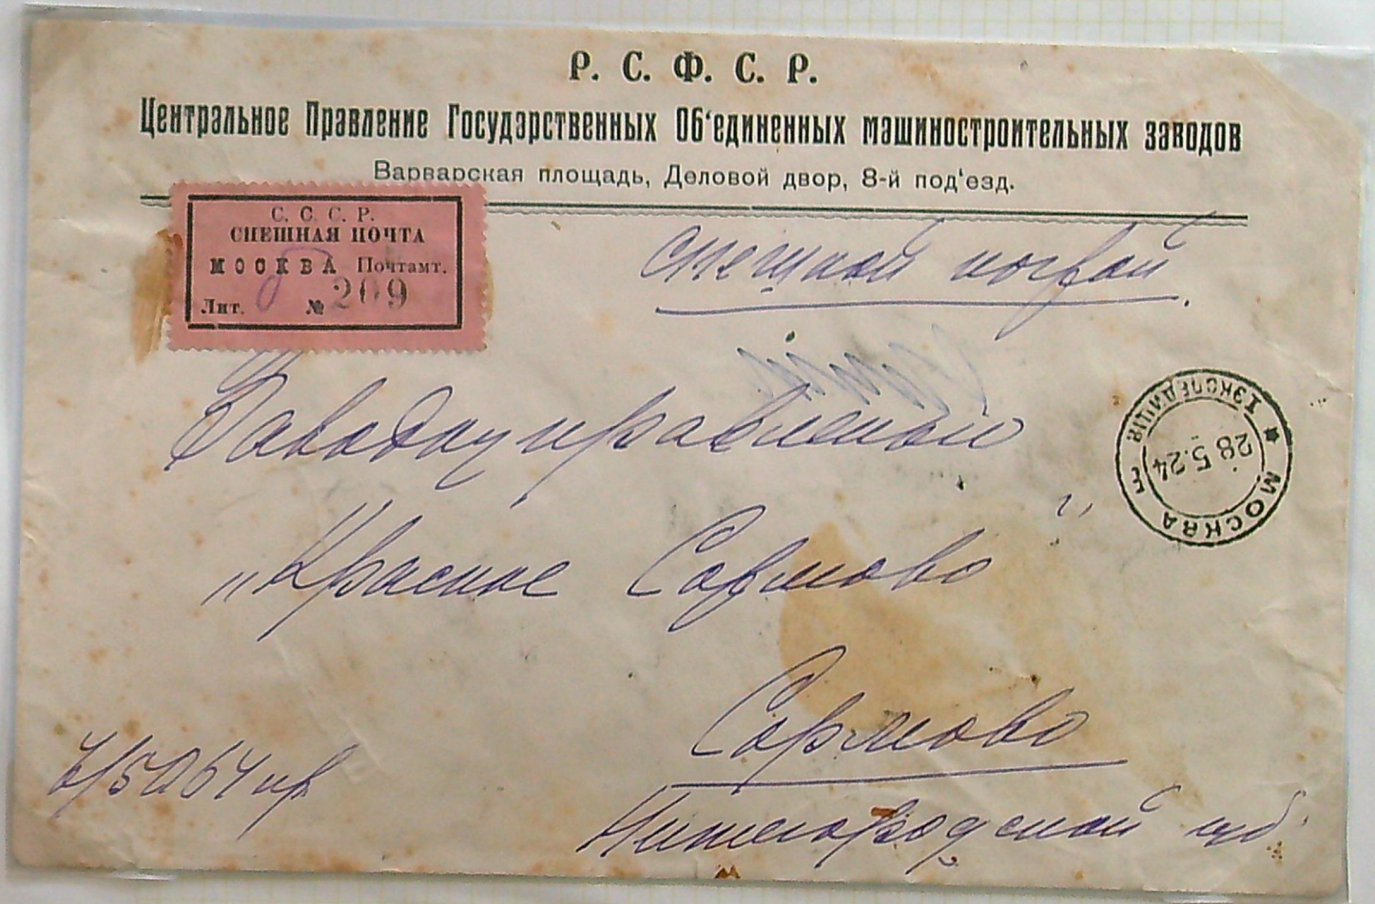 Р. С. Ф. С. Р.
Центральное Правление Государственных Об‘единенных машиностроительных заводов
Варварская площадь, Деловой двор, 8-й под‘езд.
С. С. С. Р.
СПЕШНАЯ ПОЧТА
МОСКВА Почтамт.
Лит. № 209
спешной почтой
Заводоуправлению
„Красное Сормово"
Сормово
Нижегородской губ.
* МОСКВА * I ЭКСПЕДИЦІЯ
28.5.24